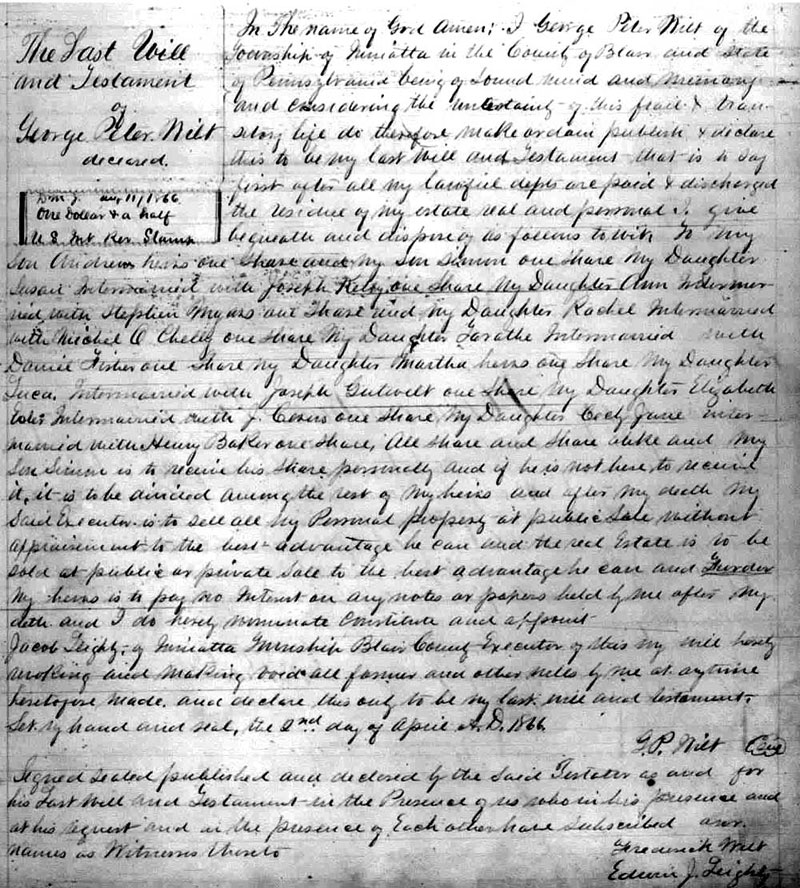 The Last Will
and Testament
of
George Peter Wilt
deceased.
D.M.J. Aug 11/1866
One Dollar & a half
U S Int Rev. Stamp
In The name of God Amen; I George Peter Wilt of the
Township of Juniatta in the County of Blair and state
of Pennsylvania being of Sound mind and memory
and considering the uncertainty of this frail & tran-
sitory life do therefore make ordain publish & declare
this to be my last Will and Testament that is to say
first after all my lawfull depts are paid & discharged
the residue of my estate real and personal I give
bequeath and dispose of as follows to wit, To my
Son Andrews heirs one Share and my Son Simon one share My Daughter
Susan Intermarried with Joseph one Share My Daughter Ann Intermar-
ried with Stephen Myars one Share and My Daughter Rachel Intermarried
with Michel O one share My Daughter Intermarried with
Daniel Fisher one Share My Daughter Martha heirs one Share My Daughter
Intermarried with Joseph Gutwelt one Share My Daughter Elizabeth
Intermarried with J. one Share, My Daughter Jane inter-
married with Henry Baker one Share, All share and Share alike and My
Son Simon is to receive his Share personally and if he is not here to receive
it, it is to be divided among the rest of my heirs and after my death my
Said Executor is to sell all my Personal property at public Sale without
appraisement to the best advantage he can and the real Estate is to be
sold at public or private Sale to the best advantage he can and Furder
My heirs is to pay no Interest on any notes or papers held by me after my
deth and I do hereby nominate Constitute and appoint
Jacob Leighty of Juniatta Township Blair County Executor of this my will hereby
revoking and making void all former and other wills by me at anytime
heretofore made. and declare this only to be my last will and testament.
Set my hand and seal, the 2nd day of April A.D. 1866
G.P. Wilt Seal
Signed Sealed published and declared by the Said Testator as and for
his Last Will and Testament in the Presence of us who in his presence and
at his request and in the presence of Each other have Subscribed our
names as Witnesses thereto
Frederick Wilt
Edwin J. Leighty